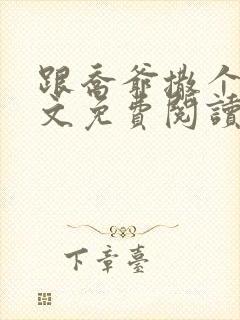 跟喬爺撒个
文免費閱讀
下章臺